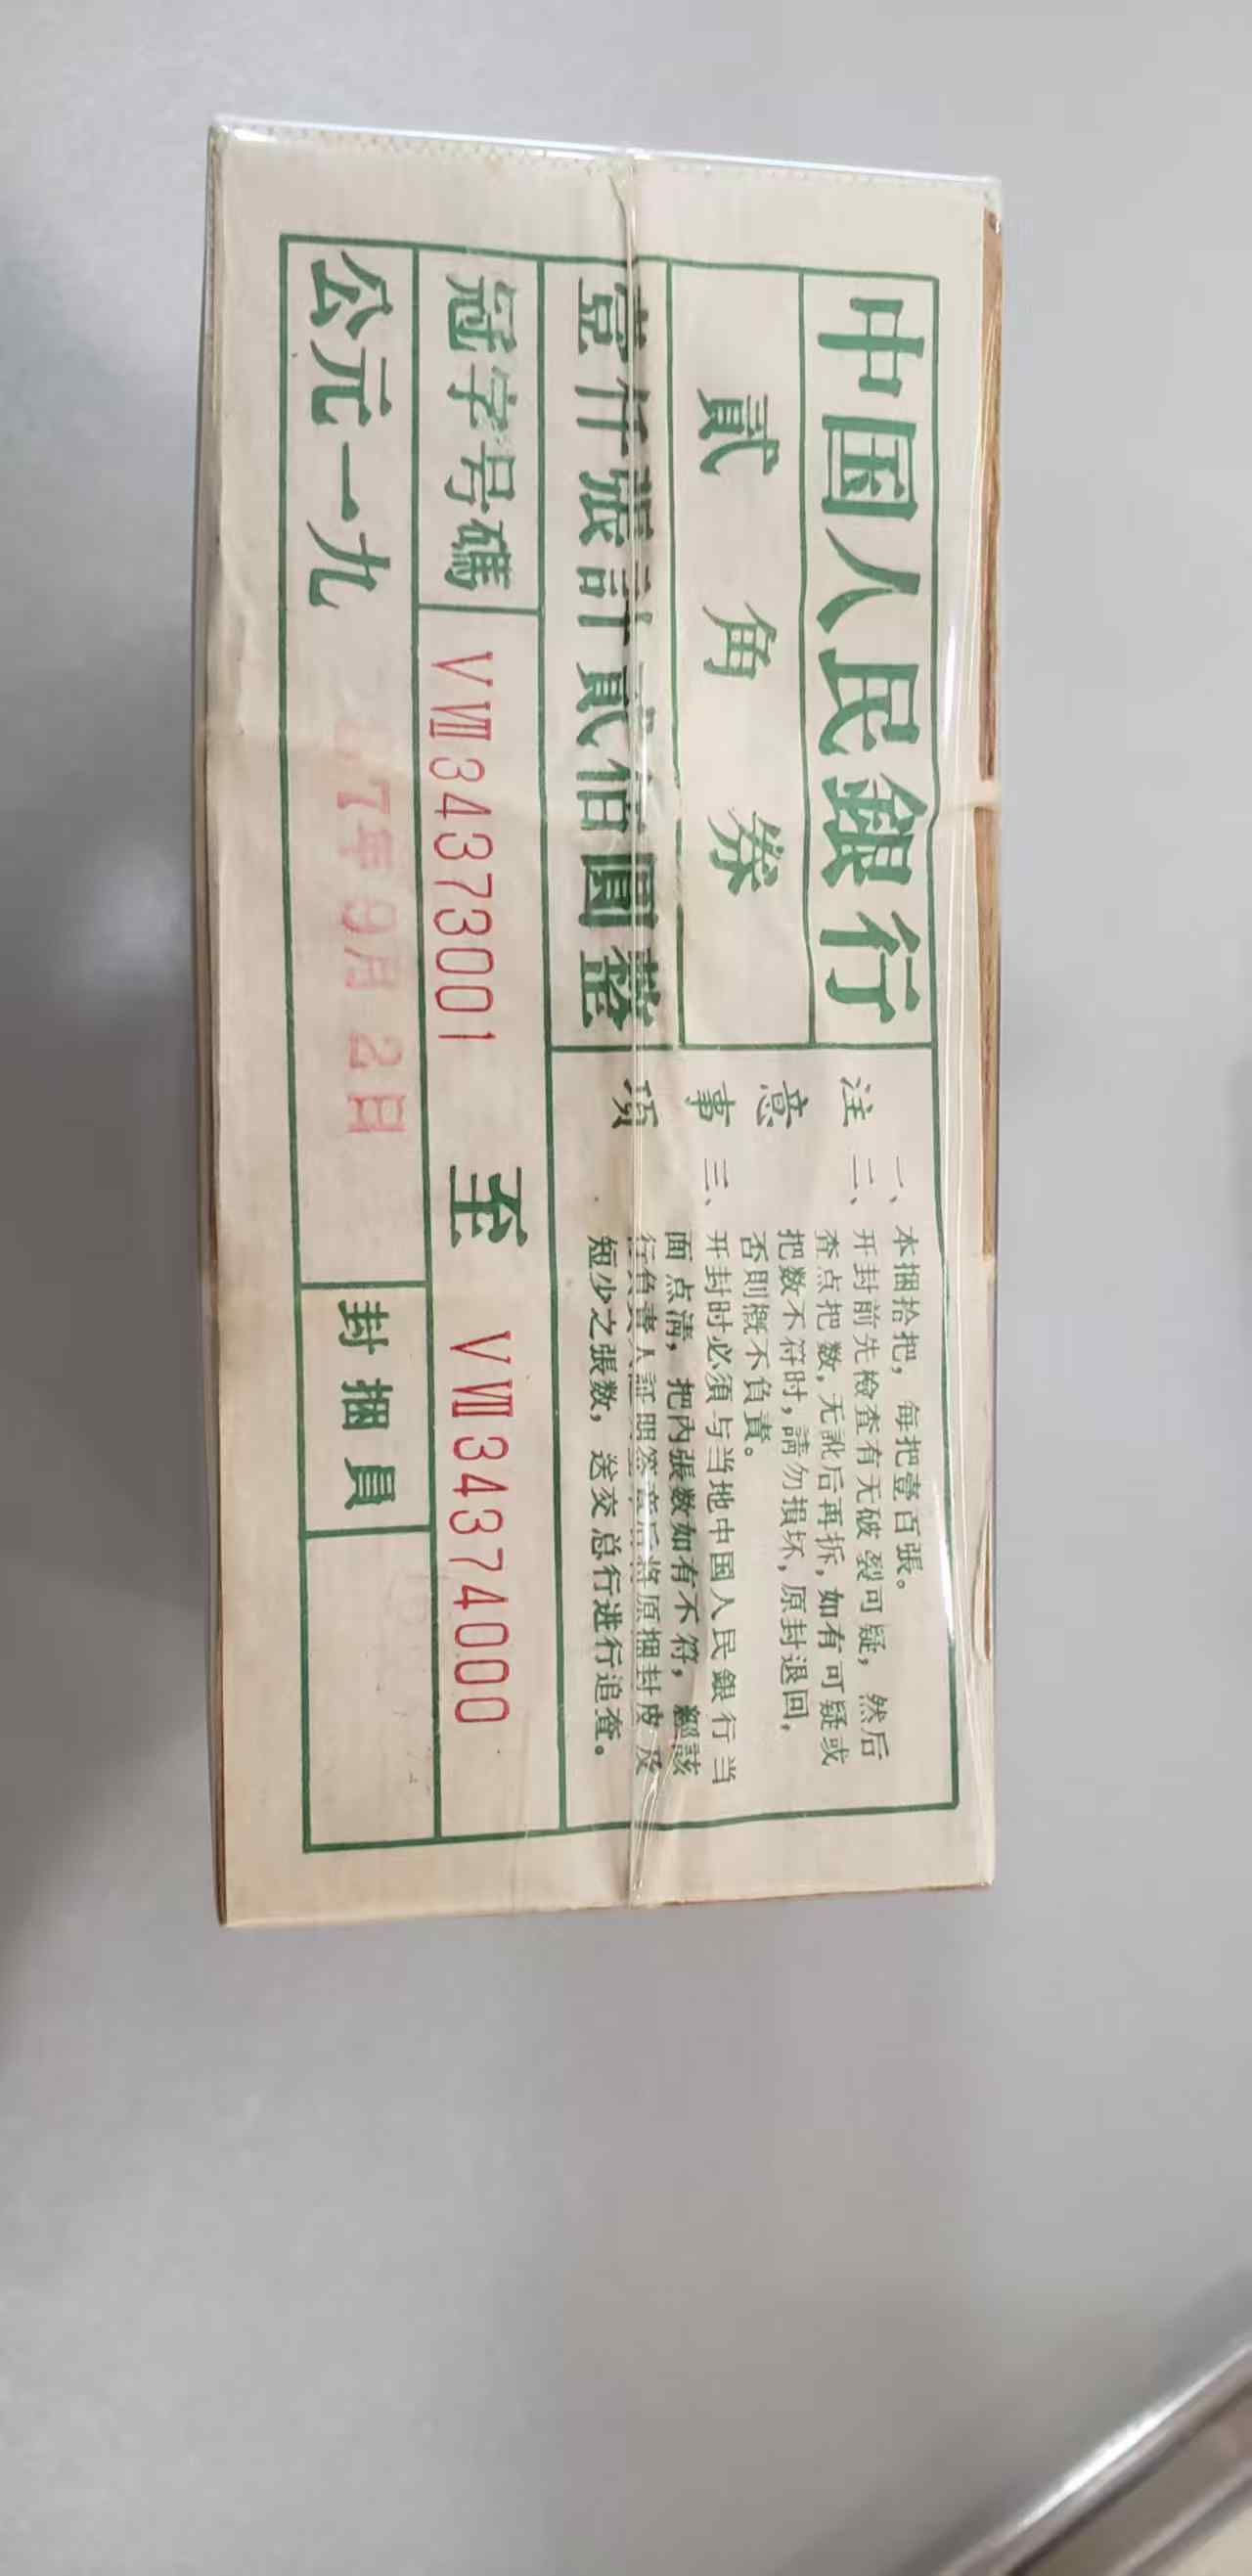 中国人民銀行
貳角券
壹仟張計貳佰圓整
注意事項
一、本捆拾把，每把壹百張。
二、开封前先檢查有无破裂可疑，然后
查点把数，无訛后再拆，如有可疑或
把数不符时，請勿損坏，原封退回，
否則概不負責。
三、开封时必須与当地中国人民銀行当
面点清，把內張数如有不符，經該
行負責人証明签章后将原捆封皮及
短少之張数，送交总行进行追查。
冠字号碼 VⅦ34373001 至 VⅦ34374000
公元一九 7年9月2日 封捆員